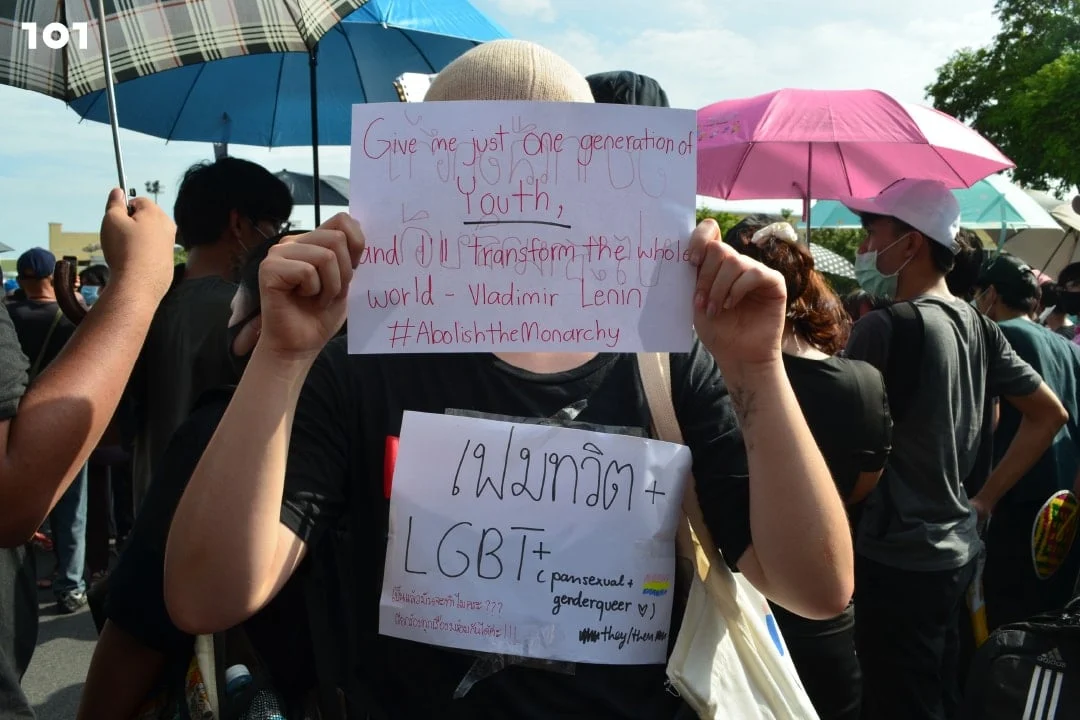 101
Give me just one generation of
Youth,
and I'll transform the whole
world - Vladimir Lenin
#AbolishtheMonarchy
เฟมทวิต +
LGBT+
( pansexual +
genderqueer ♡)
they/them
เป็นแล้วมันจะทำไมคะ???
adidas